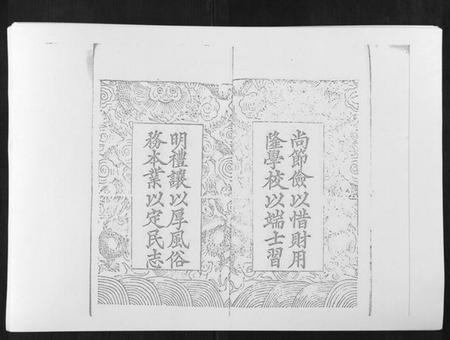 尚節儉以惜財用
隆學校以端士習
明禮讓以厚風俗
務本業以定民志